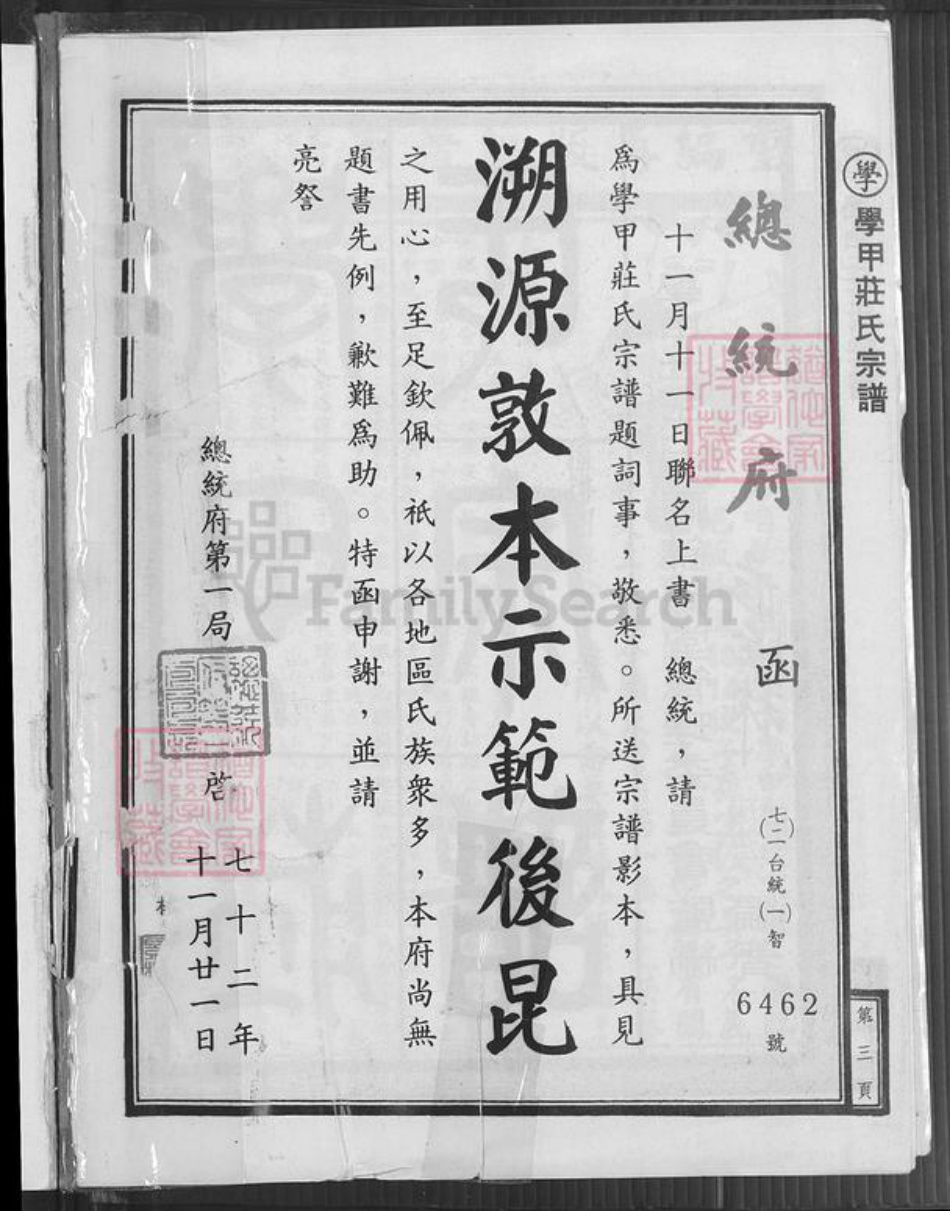 學 學甲莊氏宗譜
第三頁
總統府 函
(七二)台統(一)智
6462
號
十一月十一日聯名上書 總統，請
為學甲莊氏宗譜題詞事，敬悉。所送宗譜影本，具見
溯源敦本示範後昆
之用心，至足欽佩，祇以各地區氏族衆多，本府尚無
題書先例，歉難為助。特函申謝，並請
亮詧
總統府第一局
啓
七十二年
十一月廿一日
FamilySearch